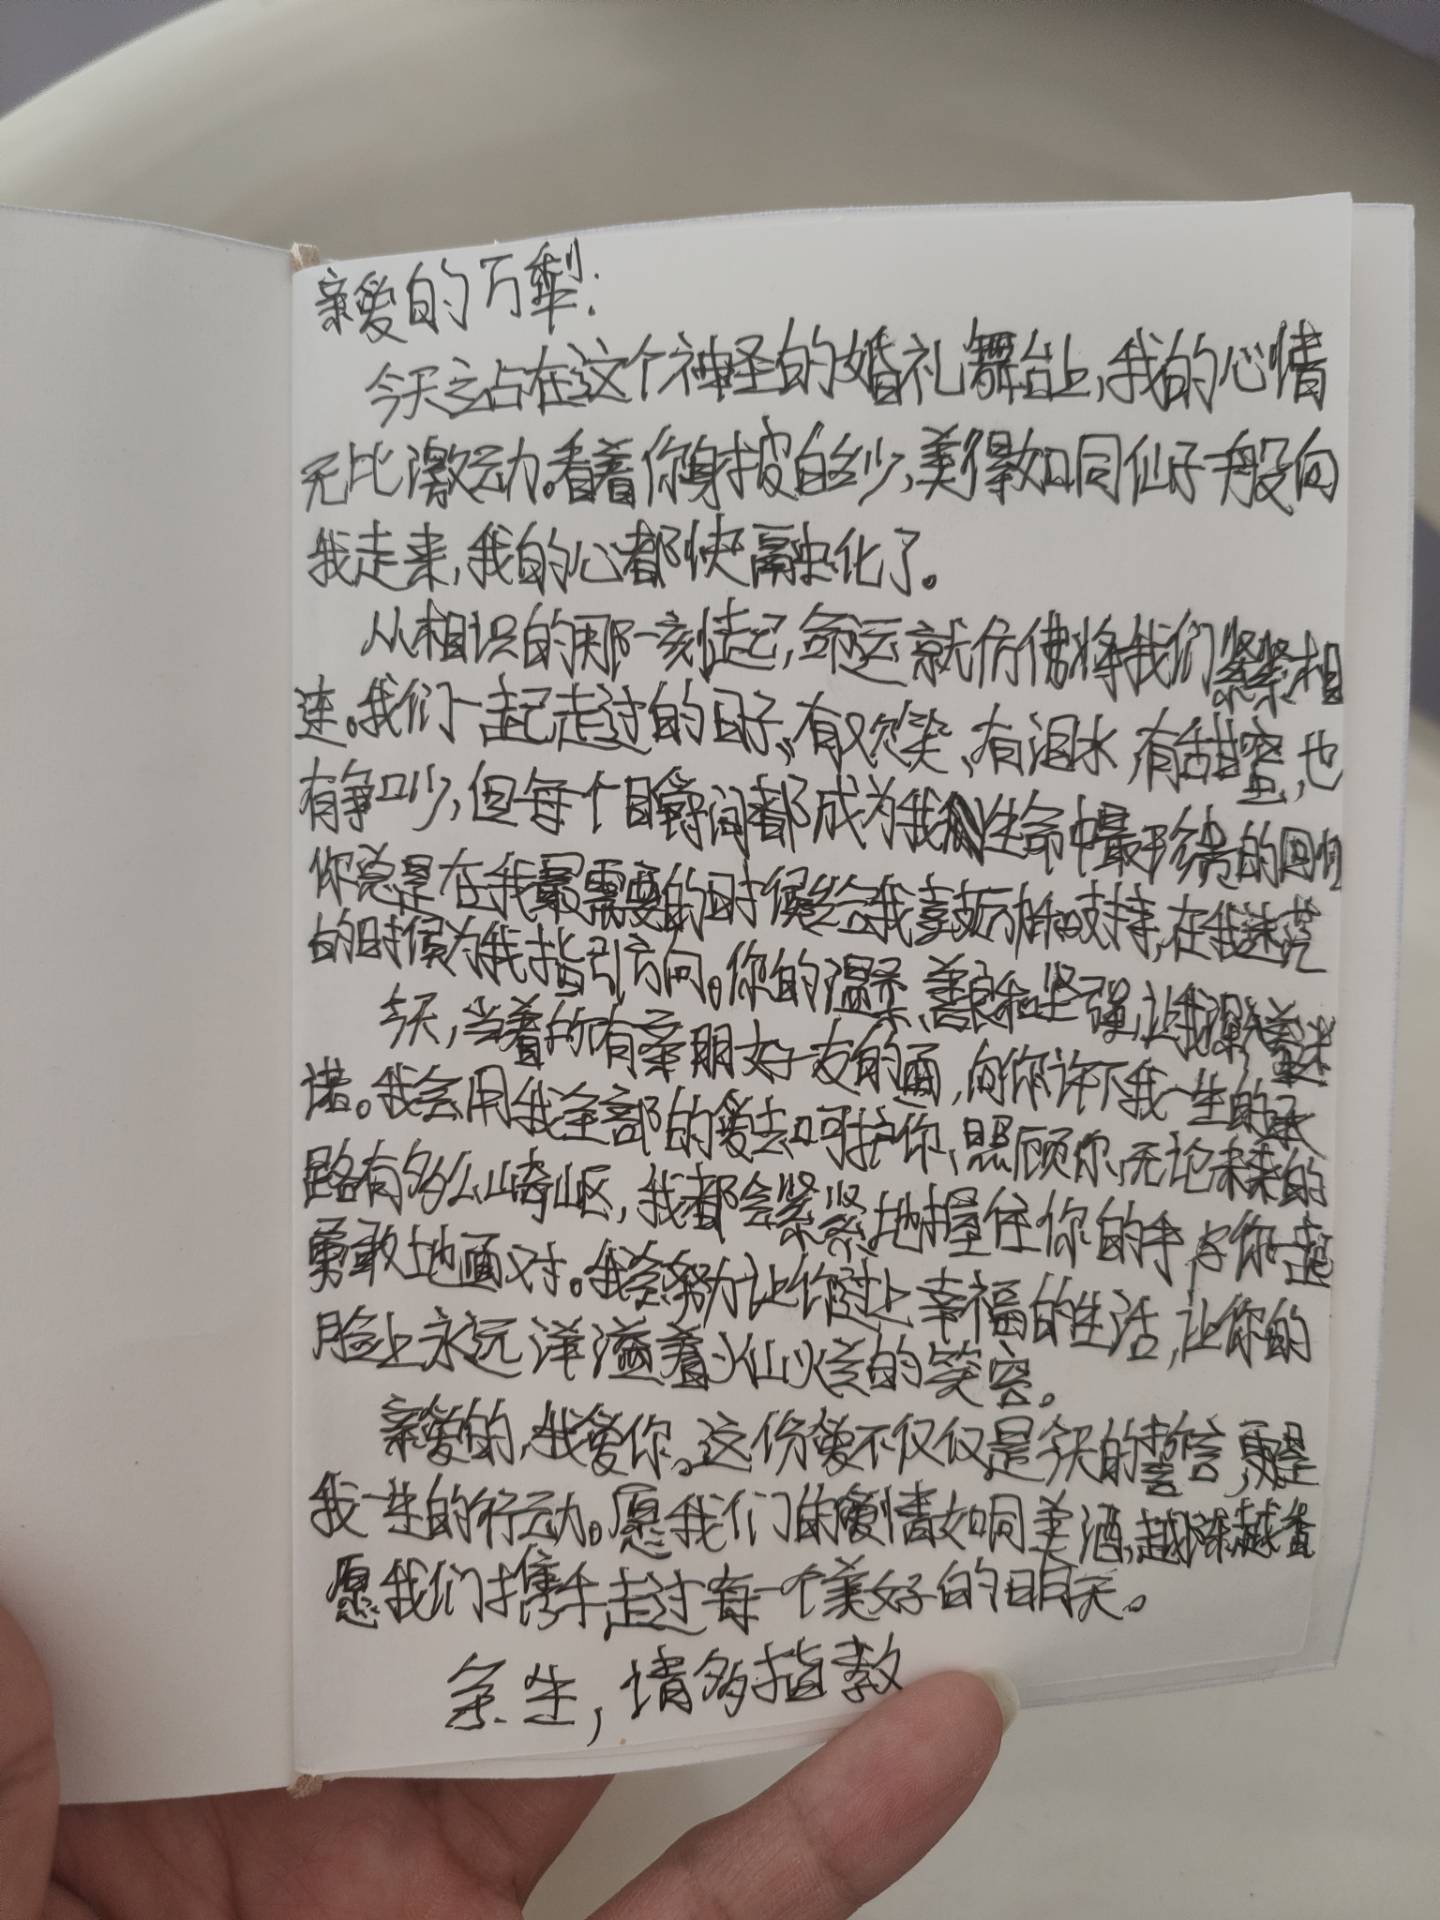 亲爱的万犁:
今天站在这个神圣的婚礼舞台上,我的心情
无比激动。看着你身披白纱,美得如同仙子一般向
我走来,我的心都快融化了。
从相识的那一刻起,命运就仿佛将我们紧紧相
连。我们一起走过的日子,有欢笑、有泪水 有甜蜜,也
有争吵,但每个瞬间都成为我生命中最珍贵的回忆
你总是在我最需要的时候给我鼓励和支持,在我迷茫
的时候为我指引方向。你的温柔、善良和坚强,让我深深着迷
今天,当着所有亲朋好友的面,向你许下我一生的承
诺。我会用我全部的爱去呵护你、照顾你,无论未来的
路有多么崎岖,我都会紧紧地握住你的手,与你一起
勇敢地面对。我会努力让你过上幸福的生活,让你的
脸上永远洋溢着灿烂的笑容。
亲爱的,我爱你。这份爱不仅仅是今天的誓言,更是
我一生的行动。愿我们的爱情如同美酒,越陈越香
愿我们携手走过每一个美好的明天。
余生,请多指教